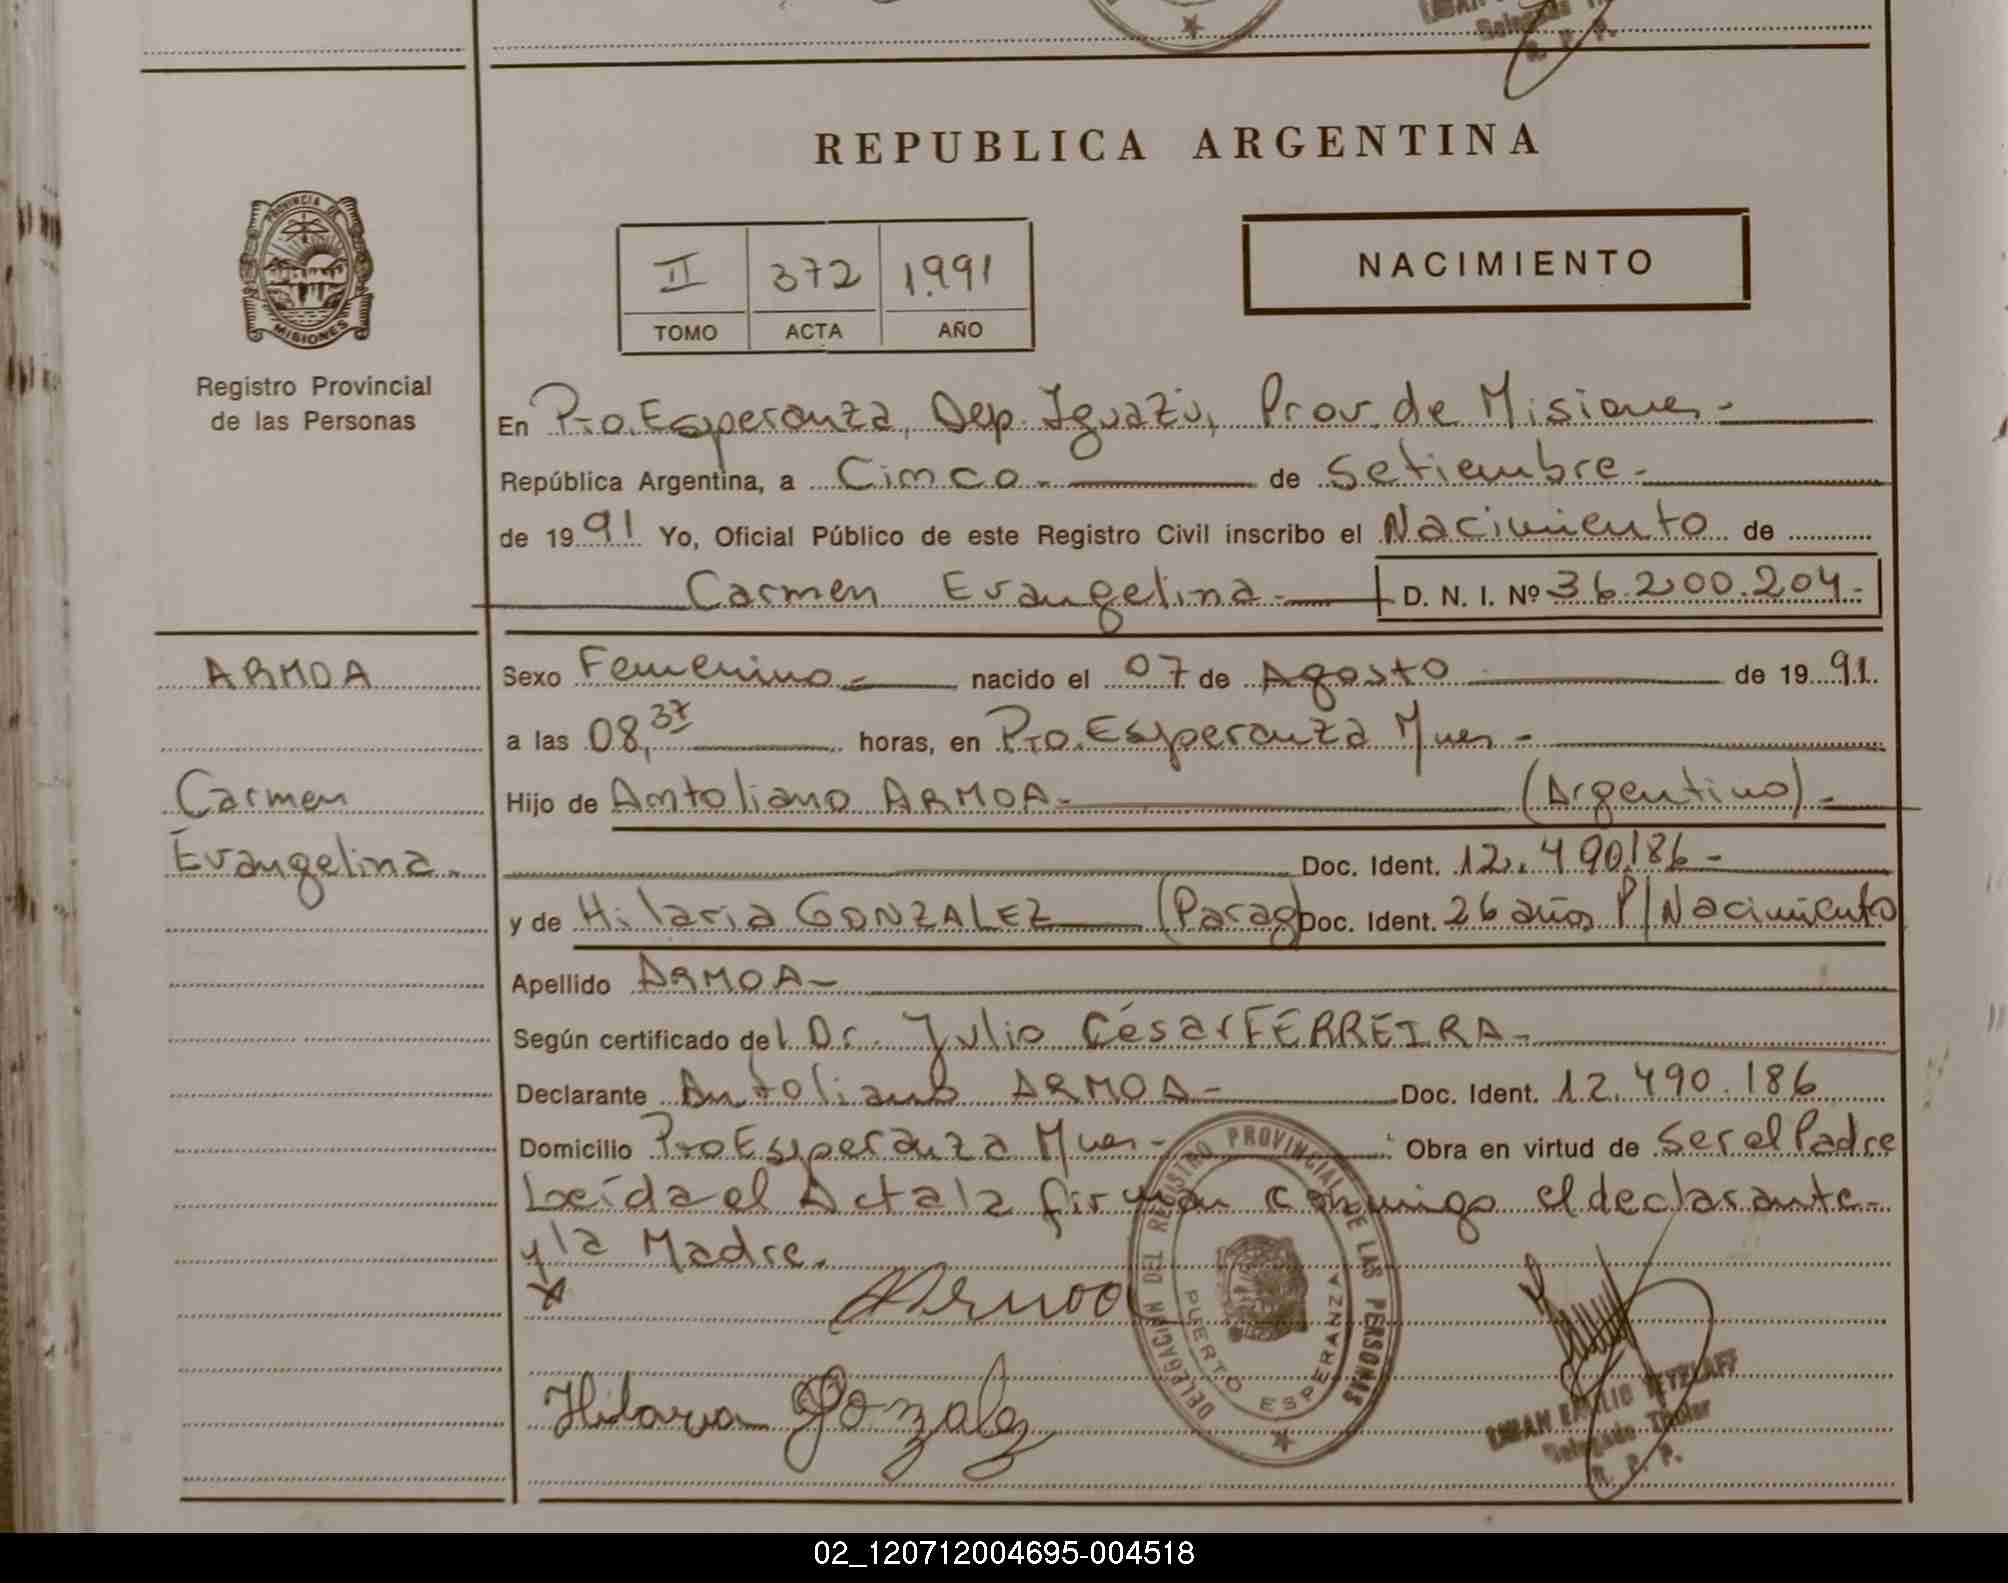 REPUBLICA ARGENTINA
PROVINCIA DE
MISIONES
Registro Provincial
de las Personas
II 372 1.991
TOMO ACTA AÑO
NACIMIENTO
En Pto. Esperanza, Dep. Iguazú, Prov. de Misiones.-
República Argentina, a Cinco.- de Setiembre.-
de 1991 Yo, Oficial Público de este Registro Civil inscribo el Nacimiento de
Carmen Evangelina.- D. N. I. Nº 36.200.204.-
ARMOA
Carmen
Evangelina.-
Sexo Femenino.- nacido el 07 de Agosto de 1991.
a las 08,37 horas, en Pto. Esperanza Mnes.-
Hijo de Antoliano ARMOA- (Argentino).-
Doc. Ident. 12.490.186-
y de Hilaria GONZALEZ (Parag) Doc. Ident. 26 años P/Nacimiento
Apellido ARMOA-
Según certificado del Dr. Julio César FERREIRA-
Declarante Antoliano ARMOA- Doc. Ident. 12.490.186
Domicilio Pto Esperanza Mnes- Obra en virtud de Ser el Padre
Leída el Acta la firman conmigo el declarante-
y la Madre.
Armoa
Hilaria Gonzalez
DELEGACION DEL REGISTRO PROVINCIAL DE LAS PERSONAS
PUERTO ESPERANZA
EMILIO
Delegado Titular
R. P. P.
02_120712004695-004518